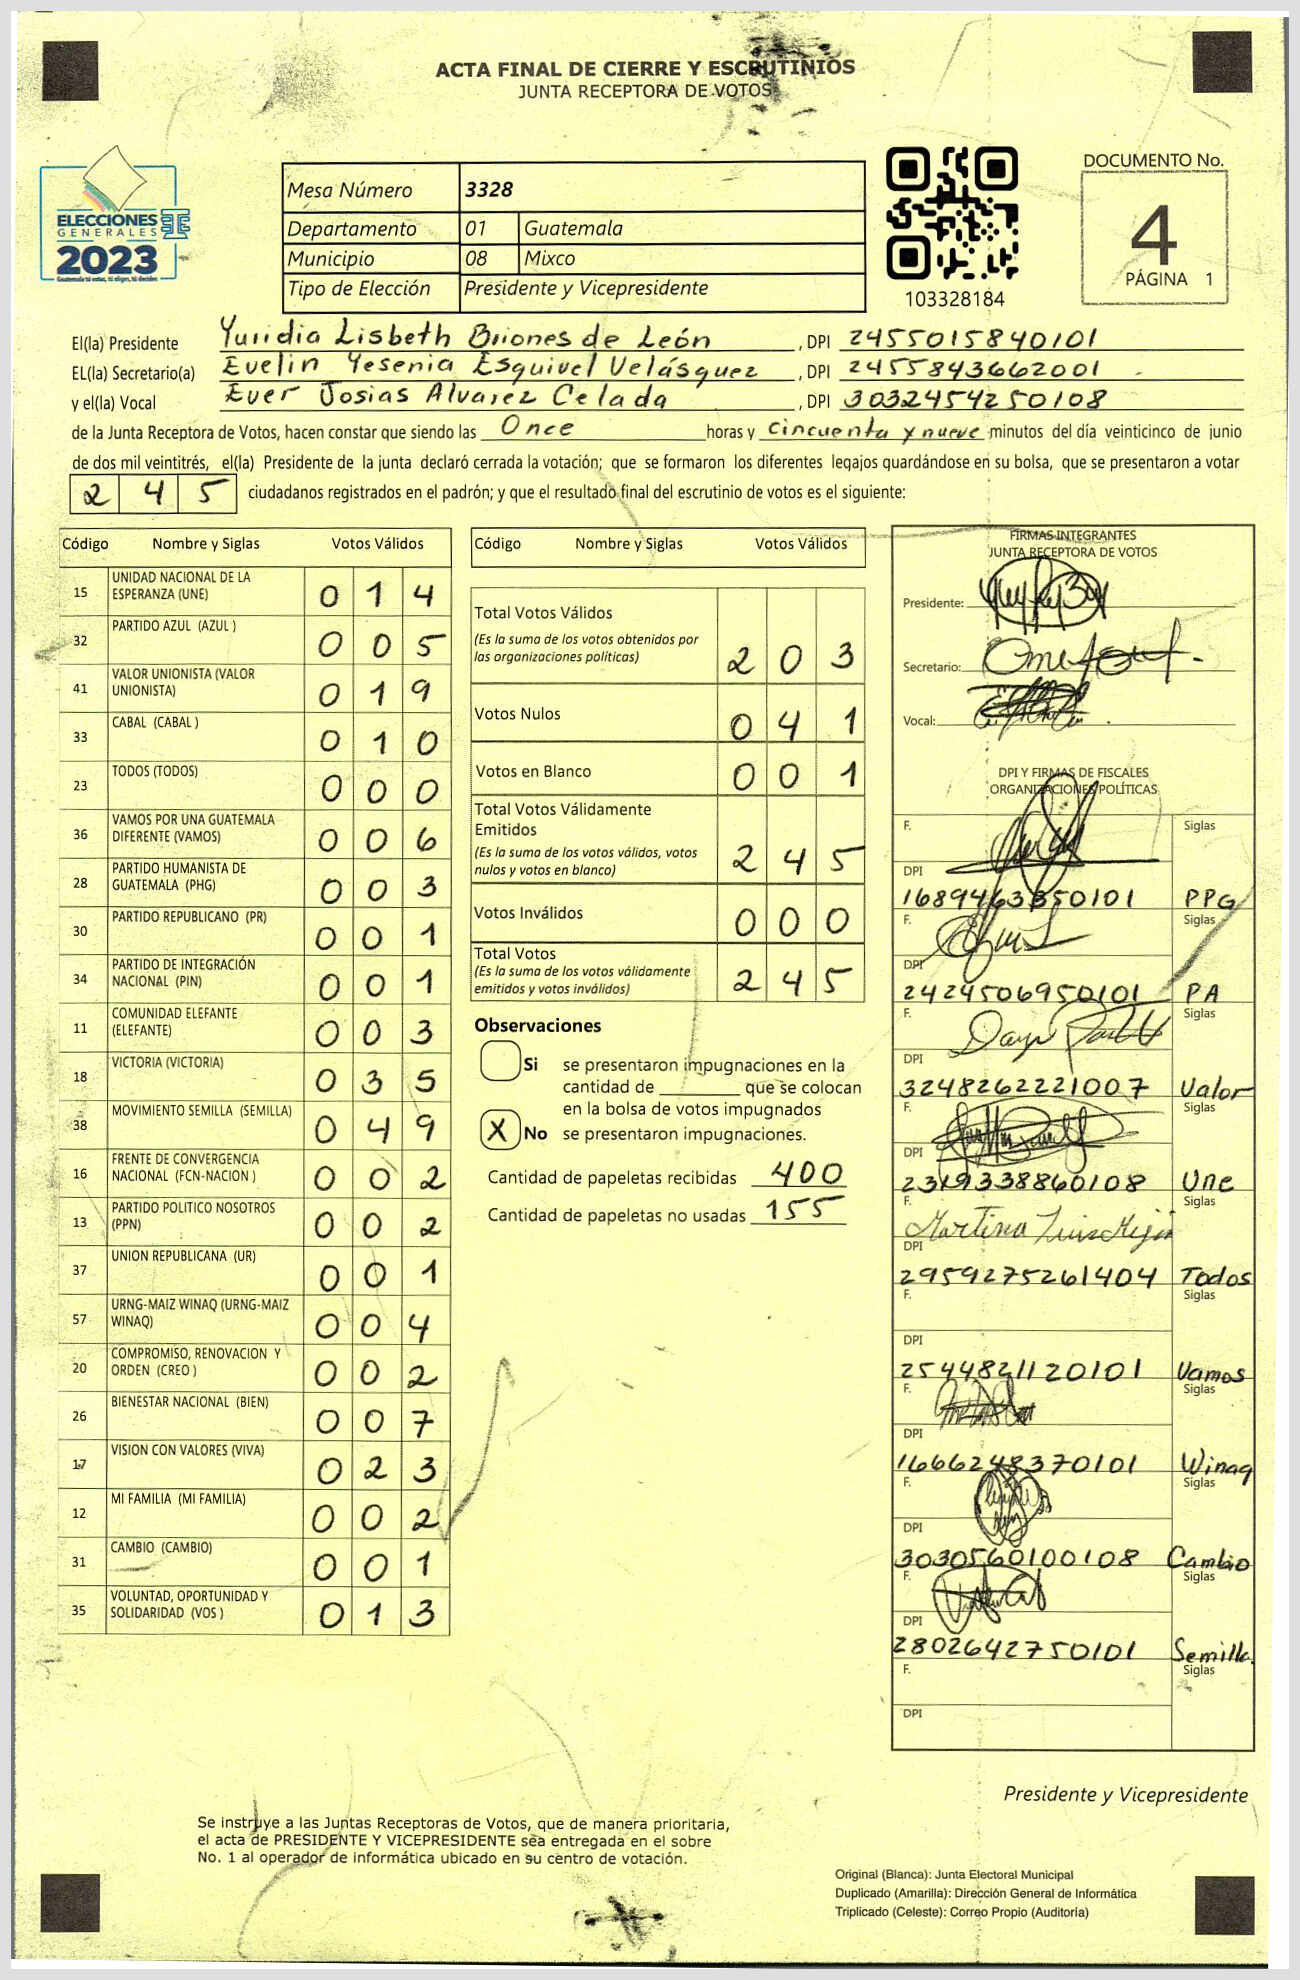 ACTA FINAL DE CIERRE Y ESCRUTINIOS
JUNTA RECEPTORA DE VOTOS
ELECCIONES
GENERALES
2023
Guatemala tú votas, tú eliges, tú decides
Mesa Número 3328
Departamento 01 Guatemala
Municipio 08 Mixco
Tipo de Elección Presidente y Vicepresidente
103328184
DOCUMENTO No.
4
PÁGINA 1
El(la) Presidente Yuridia Lisbeth Briones de León, DPI 2455015840101
EL(la) Secretario(a) Evelin Yesenia Esquivel Velásquez, DPI 2455843662001
y el(la) Vocal Ever Josias Alvarez Celada, DPI 3032454250108
de la Junta Receptora de Votos, hacen constar que siendo las Once horas y cincuenta y nueve minutos del día veinticinco de junio
de dos mil veintitrés, el(la) Presidente de la junta declaró cerrada la votación; que se formaron los diferentes legajos guardándose en su bolsa, que se presentaron a votar
2 4 5 ciudadanos registrados en el padrón; y que el resultado final del escrutinio de votos es el siguiente:
Código Nombre y Siglas Votos Válidos
15 UNIDAD NACIONAL DE LA ESPERANZA (UNE) 0 1 4
32 PARTIDO AZUL (AZUL ) 0 0 5
41 VALOR UNIONISTA (VALOR UNIONISTA) 0 1 9
33 CABAL (CABAL ) 0 1 0
23 TODOS (TODOS) 0 0 0
36 VAMOS POR UNA GUATEMALA DIFERENTE (VAMOS) 0 0 6
28 PARTIDO HUMANISTA DE GUATEMALA (PHG) 0 0 3
30 PARTIDO REPUBLICANO (PR) 0 0 1
34 PARTIDO DE INTEGRACIÓN NACIONAL (PIN) 0 0 1
11 COMUNIDAD ELEFANTE (ELEFANTE) 0 0 3
18 VICTORIA (VICTORIA) 0 3 5
38 MOVIMIENTO SEMILLA (SEMILLA) 0 4 9
16 FRENTE DE CONVERGENCIA NACIONAL (FCN-NACION ) 0 0 2
13 PARTIDO POLITICO NOSOTROS (PPN) 0 0 2
37 UNION REPUBLICANA (UR) 0 0 1
57 URNG-MAIZ WINAQ (URNG-MAIZ WINAQ) 0 0 4
20 COMPROMISO, RENOVACION Y ORDEN (CREO ) 0 0 2
26 BIENESTAR NACIONAL (BIEN) 0 0 7
17 VISION CON VALORES (VIVA) 0 2 3
12 MI FAMILIA (MI FAMILIA) 0 0 2
31 CAMBIO (CAMBIO) 0 0 1
35 VOLUNTAD, OPORTUNIDAD Y SOLIDARIDAD (VOS ) 0 1 3
Código Nombre y Siglas Votos Válidos
Total Votos Válidos
(Es la suma de los votos obtenidos por
las organizaciones políticas) 2 0 3
Votos Nulos 0 4 1
Votos en Blanco 0 0 1
Total Votos Válidamente
Emitidos
(Es la suma de los votos válidos, votos
nulos y votos en blanco) 2 4 5
Votos Inválidos 0 0 0
Total Votos
(Es la suma de los votos válidamente
emitidos y votos inválidos) 2 4 5
Observaciones
Si se presentaron impugnaciones en la
cantidad de ________ que se colocan
en la bolsa de votos impugnados
X No se presentaron impugnaciones.
Cantidad de papeletas recibidas 400
Cantidad de papeletas no usadas 155
FIRMAS INTEGRANTES
JUNTA RECEPTORA DE VOTOS
Presidente:
Secretario:
Vocal:
DPI Y FIRMAS DE FISCALES
ORGANIZACIONES POLÍTICAS
F. Siglas
DPI
1689463350101 PPG
F. Siglas
DPI
2424506950101 PA
F. Siglas
DPI
3248262221007 Valor
F. Siglas
DPI
2319338860108 Une
F. Siglas
Martina
DPI
2959275261404 Todos
F. Siglas
DPI
2544821120101 Vamos
F. Siglas
DPI
1666248370101 Winaq
F. Siglas
DPI
3030560100108 Cambio
F. Siglas
DPI
2802642750101 Semilla
F. Siglas
DPI
Presidente y Vicepresidente
Se instruye a las Juntas Receptoras de Votos, que de manera prioritaria,
el acta de PRESIDENTE Y VICEPRESIDENTE sea entregada en el sobre
No. 1 al operador de informática ubicado en su centro de votación.
Original (Blanca): Junta Electoral Municipal
Duplicado (Amarilla): Dirección General de Informática
Triplicado (Celeste): Correo Propio (Auditoría)